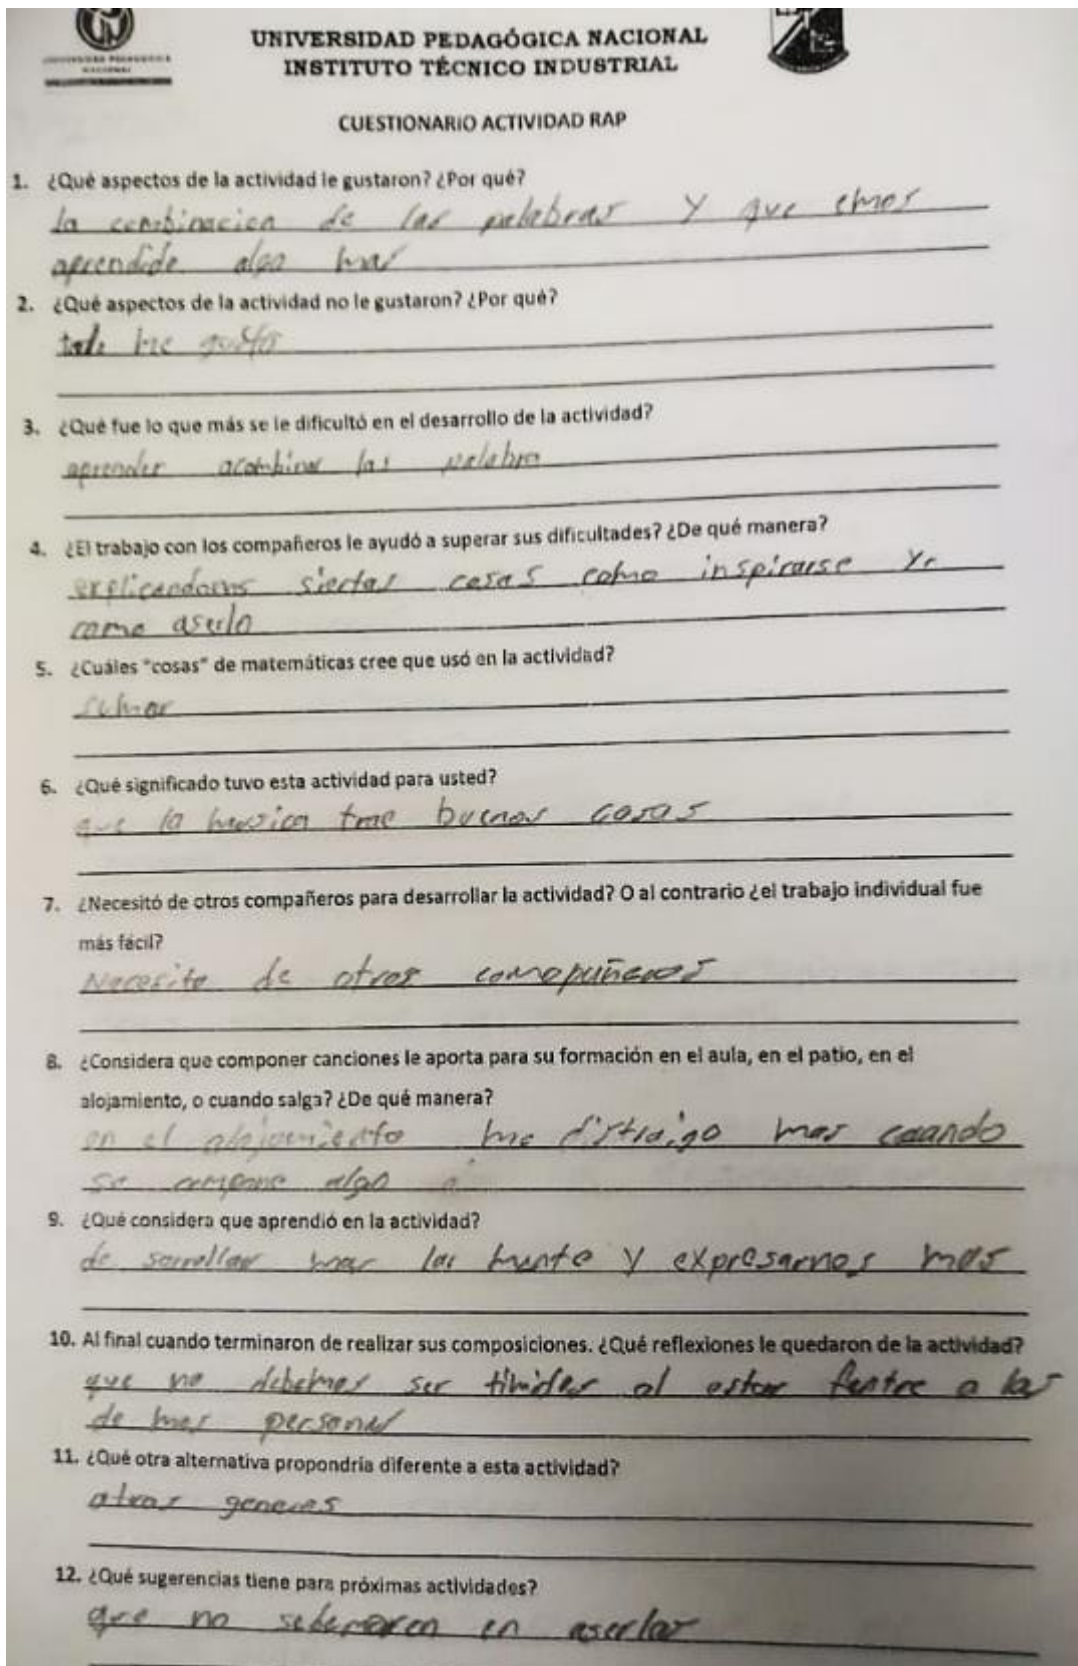 UNIVERSIDAD PEDAGÓGICA NACIONAL
UNIVERSIDAD PEDAGÓGICA
NACIONAL
INSTITUTO TÉCNICO INDUSTRIAL
CUESTIONARIO ACTIVIDAD RAP
1. ¿Qué aspectos de la actividad le gustaron? ¿Por qué?
la combinacion de las palabras y que emos
aprendido algo mas
2. ¿Qué aspectos de la actividad no le gustaron? ¿Por qué?
todo me gusto
3. ¿Qué fue lo que más se le dificultó en el desarrollo de la actividad?
aprender acombinar las palabra
4. ¿El trabajo con los compañeros le ayudó a superar sus dificultades? ¿De qué manera?
explicandonos siertas cosas como inspirarse
como aserlo
5. ¿Cuáles "cosas" de matemáticas cree que usó en la actividad?
sumar
6. ¿Qué significado tuvo esta actividad para usted?
que la musica trae buenas cosas
7. ¿Necesitó de otros compañeros para desarrollar la actividad? O al contrario ¿el trabajo individual fue
más fácil?
Necesite de otros comopuñeros
8. ¿Considera que componer canciones le aporta para su formación en el aula, en el patio, en el
alojamiento, o cuando salga? ¿De qué manera?
en el alojamiento me distraigo mas cuando
se compone algo
9. ¿Qué considera que aprendió en la actividad?
de sarrollar mas la mente y expresarnos mas
10. Al final cuando terminaron de realizar sus composiciones. ¿Qué reflexiones le quedaron de la actividad?
que no debemos ser timides al estar fentre a las
de mas personas
11. ¿Qué otra alternativa propondría diferente a esta actividad?
otros generos
12. ¿Qué sugerencias tiene para próximas actividades?
que no sedemoren en aserlas